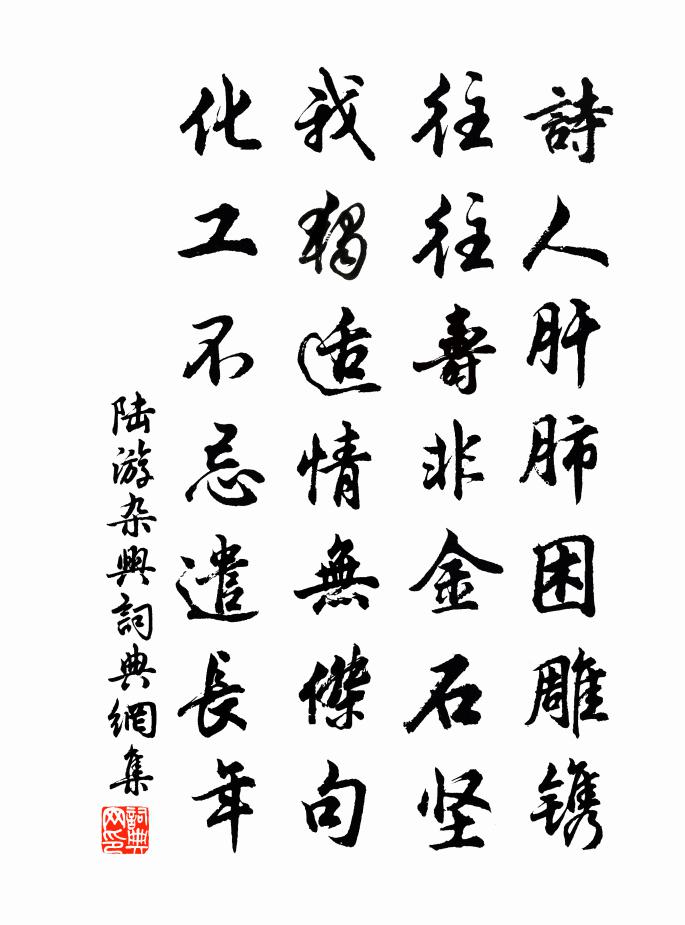 詩人肝肺困雕镌
往往壽非金石坚
我獨适情無傑句
化工不忌遣長年
陆游杂興詞典網集
詞典网印